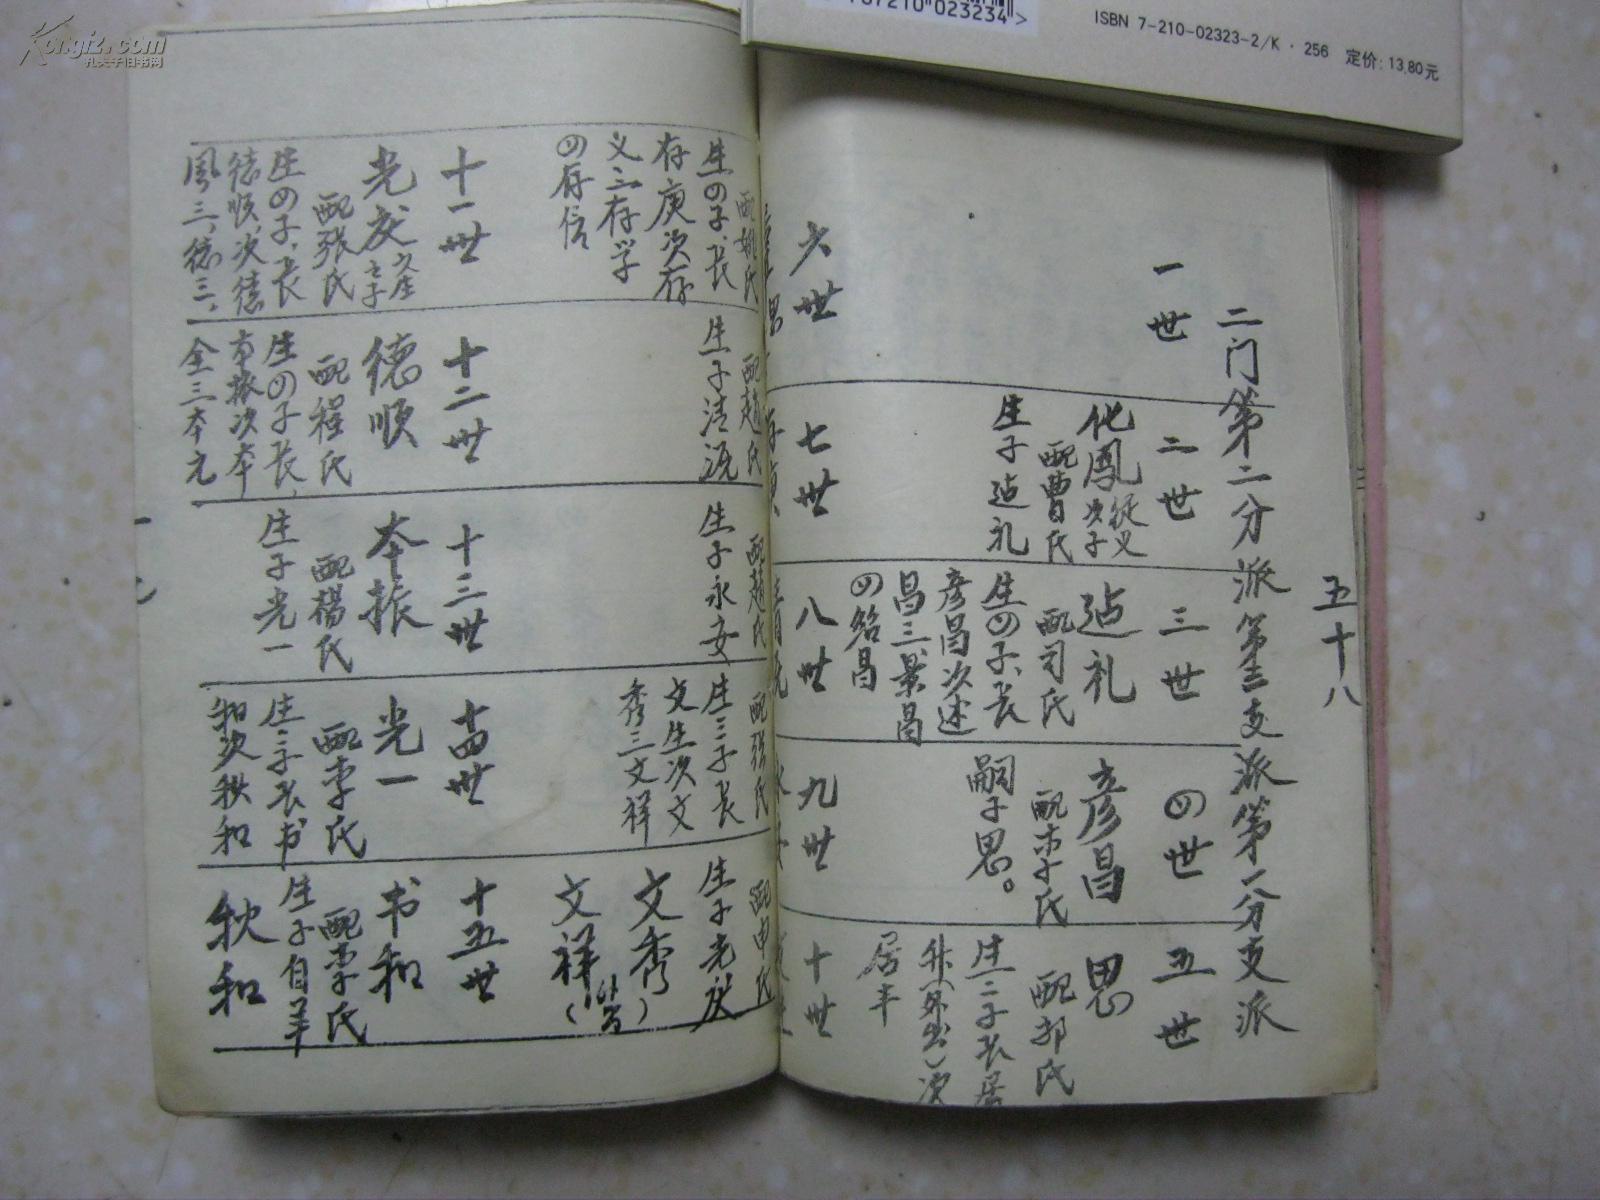 Kongfz.com
孔夫子旧书网
ISBN 7-210-02323-2/K · 256 定价: 13.80元
五十八
二门第二分派第三支派第一分支派
一世
二世
化凤
从义
次子
配曹氏
生子
礼
三世
礼
配司氏
生四子,长
彦昌次述
昌三景昌
四绍昌
四世
彦昌
配李氏
嗣子思。
五世
思
配郭氏
生二子长居
升(外出)次
居丰
六世
七世
八世
九世
十世
配姚氏
生四子,长
存庚次存
义三存学
四存信
配赵氏
生子清源
配赵氏
生子永安
配张氏
生三子长
文生次文
秀三文祥
配申氏
生子光庆
文秀
文祥
十一世
光庆
配张氏
生四子,长
德顺,次德
风三,德三,
十二世
德顺
配程氏
生四子长,
本振次本
全三本元
十三世
本振
配杨氏
生子光一
十四世
光一
配李氏
生二子长书
和次秋和
十五世
书和
配李氏
生子自羊
秋和